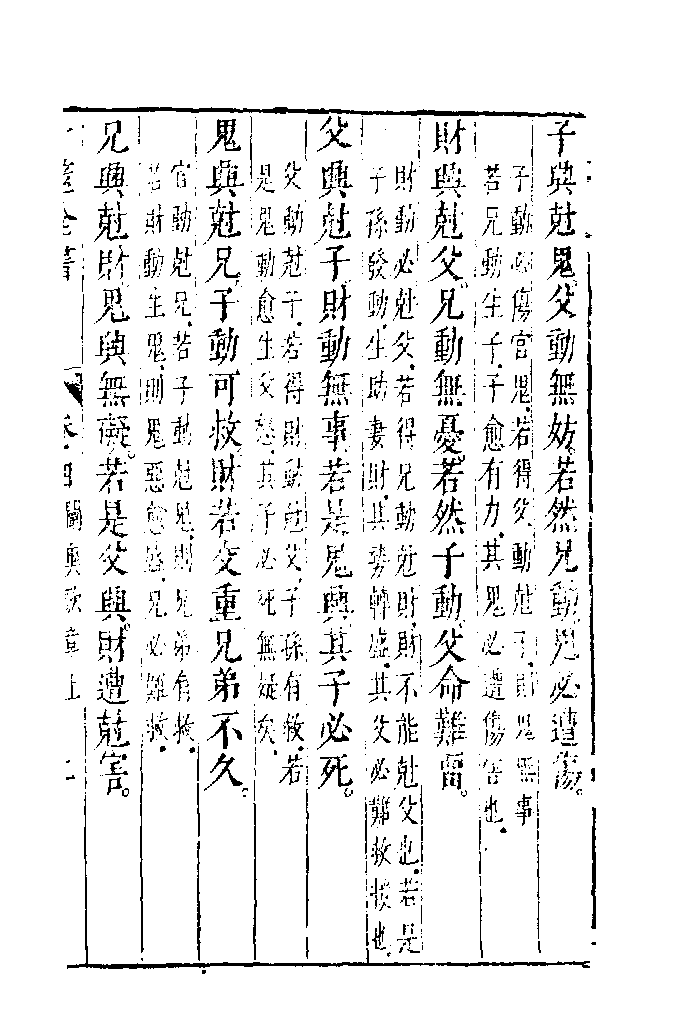 子興尅鬼父動無妨若然兄動鬼必遭傷
子動必傷官鬼若得父動尅子則鬼無事
若兄動生子子愈有力其鬼必遭傷害也
財興尅父兄動無憂若然子動父命難留
財動必尅父若得兄動尅財財不能尅父也若是
子孫發動生助妻財其勢轉盛其父必難救援也
父興尅子財動無事若是鬼興其子必死
父動尅子若得財動尅父子孫有救若
是鬼動愈生父怒其子必死無疑矣
鬼興尅兄子動可救財若交重兄弟不久
官動尅兄若子動尅鬼則兄弟有救
若財動生鬼則鬼惡愈盛兄必難救
兄興尅財鬼興無礙若是父興財遭尅害
筮全書 卷四闡奧歌章上